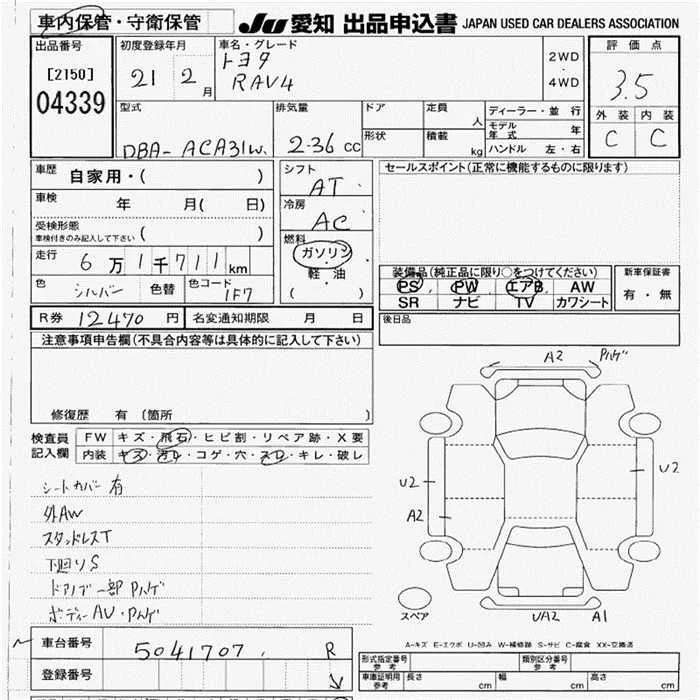 車内保管・守衛保管
JU 愛知 出品申込書 JAPAN USED CAR DEALERS ASSOCIATION
出品番号
[2150]
04339
初度登録年月
21 2 月
車名・グレード
トヨタ
RAV4
2WD
・
4WD
評価点
3.5
外装 内装
C C
型式
DBA- ACA31W
排気量
2.36 CC
ドア
定員
人
形状
積載
kg
ディーラー・並行
モデル年式 年
ハンドル 左・右
車歴
自家用・( )
車検 年 月( 日)
受検形態
車検付きのみ記入して下さい ( )
走行
6万1千711km
色 シルバー 色替 色コード 1F7
シフト
AT
冷房
AC
燃料
ガソリン
・
軽油
( )
セールスポイント(正常に機能するものに限ります)
装備品(純正品に限り○をつけてください)
PS PW エアB AW
SR ナビ TV カワシート
新車保証書
有・無
R券 12470 円 名変通知期限 月 日
後日品
注意事項申告欄(不具合内容等は具体的に記入して下さい)
修復歴 有 〔箇所 〕
検査員記入欄
FW キズ・飛石・ヒビ割・リペア跡・X要
内装 キズ・汚レ・コゲ・穴・スレ・キレ・破レ
シートカバー有
外AW
スタッドレスT
下回りS
ドアノブ一部ハゲ
ボディーAU・ハゲ
A2
U2
A2
U2
UA2 A1
スペア
A-キズ E-エクボ U-凹み W-補修跡 S-サビ C-腐食 XX-交換済
車台番号 5041707 R
登録番号
型式指定番号 参考
類別区分番号 参考
車庫証明用 参考 長さ cm 幅 cm 高さ cm